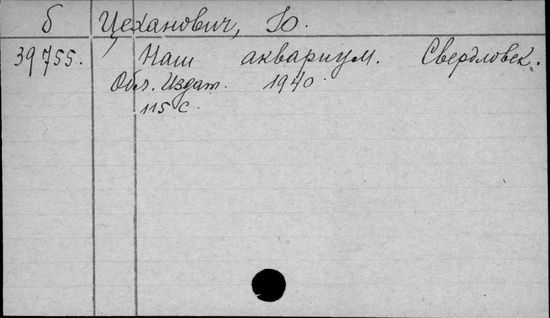 б Цеханович, Ю.
39755. Наш аквариум. Свердловск.
Обл. Издат. 1940.
115 с.